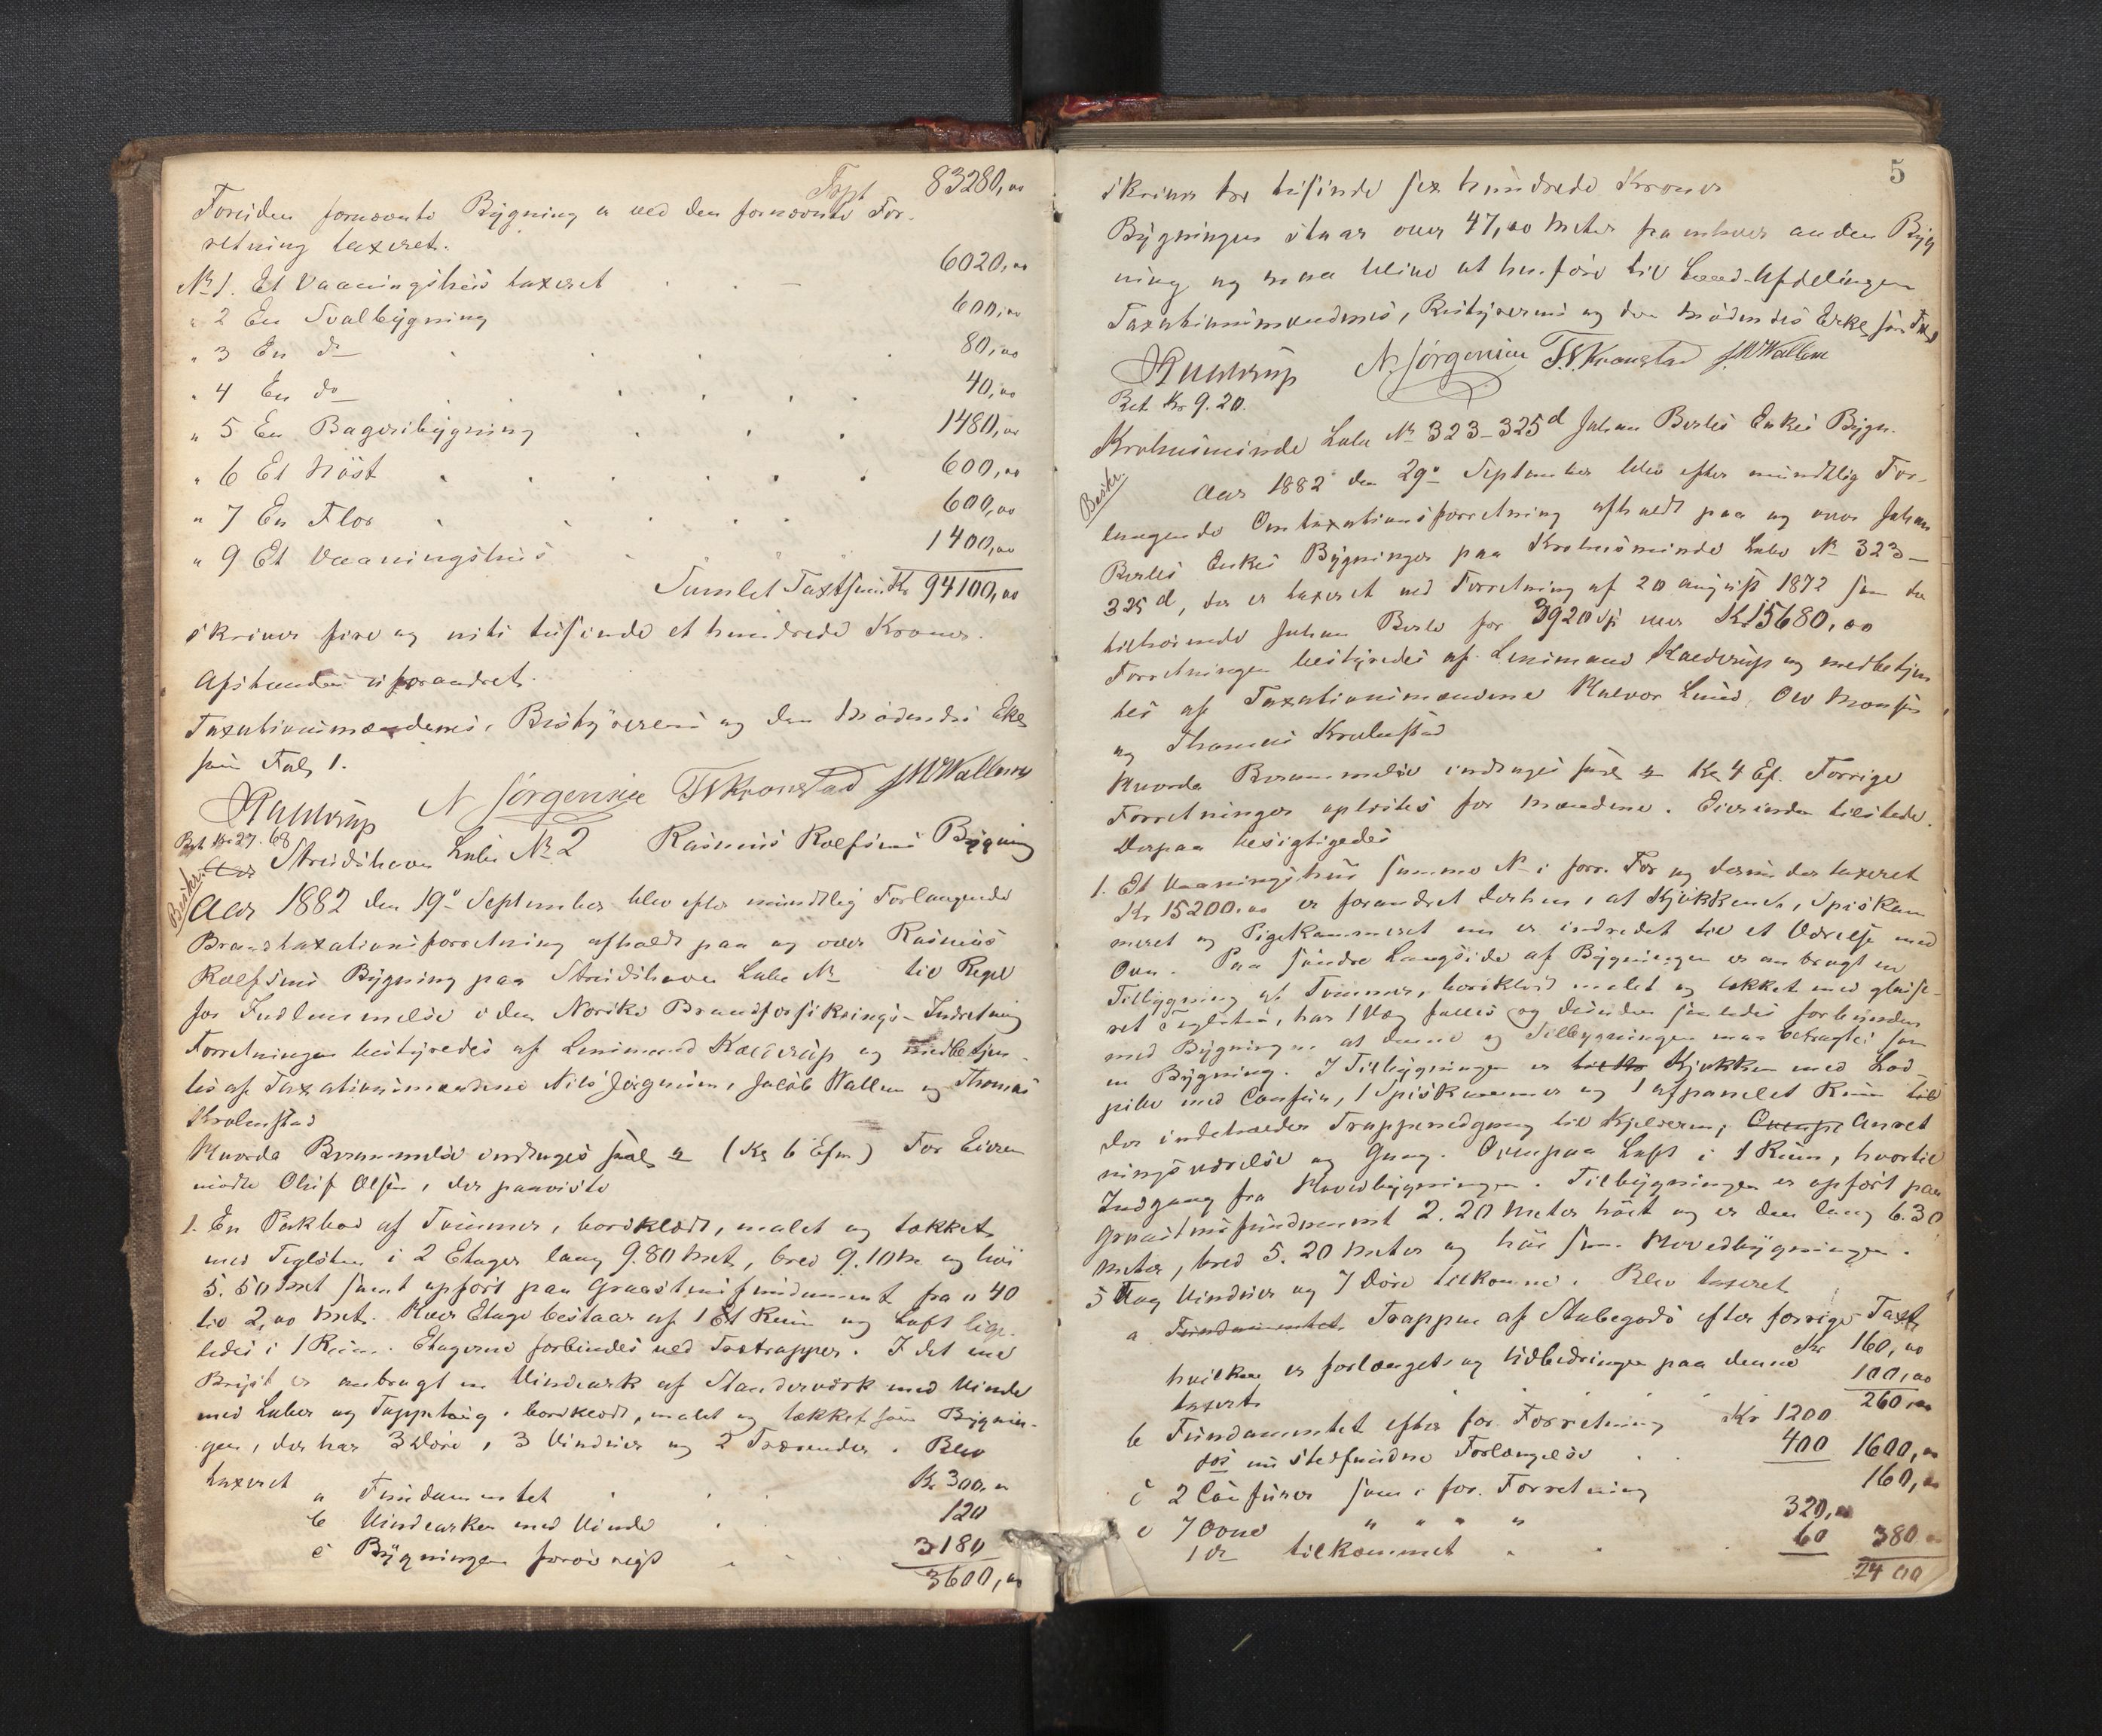 Tspt 83280,00
Foruden fornævnte Bygning er ved den fornævnte For-
retning taxeret.
No 1. Et Vaaningshus taxeret 6020,00
" 2 En Svalbygning 600,00
" 3 En do 80,00
" 4 En do 40,00
" 5 En Bageribygning 1480,00
" 6 Et Nöst 600,00
" 7 En Flor 600,00
" 9 Et Vaaningshus 1400,00
Samlet Taxtsum Kr 94100,00
skriver fire og niti tusinde et hundrede Kroner.
Afstanden uforandret.
Taxationsmændenes, Bestyrerens og den Mødendes
som Fol, 1.
N Jörgensen TKronstad JWWallem
Bet Kr 27.68
Strudshavn Lube No 2 Rasmus Rolfsens Bygning
Beskr.
Aar 1882 den 19o September blev efter mundtlig Forlangende
Brandtaxationsforretning afholdt paa og over Rasmus
Rolfsens Bygning paa Strudshavn Lube No til Regel
for Indlemmelse i den Norske Brandforsikrings-Indretning
Forretningen bestyredes af Lensmand og medbetjen-
tes af Taxationsmændene Nils Jörgensen, Jakob Wallem og Thomas
Krohnstad
Hvorda Berammelse indtages (Kr 6 Efm) For Eieren
mødte Oluf Olsen, der paaviste
1. En Pakbod af Tömmer, bordklædt, malet og tækket
med Teglsten i 2 Etager lang 9.80 Met, bred 9.10 M og höi
5.50 Met samt opfört paa Graastensfundament fra 0 40
til 2,00 Met. Hver Etage bestaar af 1 Et Rum og Loft lige-
ledes i 1 Rum. Etagerne forbindes ved Trætrapper. I det ene
Bryst er anbragt en Vindeark af Standerværk med Vinde
med Luker og bordklædt, malet og tækket som Bygnin-
gen, der har 3 Döre, 3 Vinduer og 2 Blev
taxeret
a Fundamentet Kr 300,00
b Vindearken med Vinde 120
c Bygningen forövrigt 3180
3600,00
5
skriver tre tusinde sex hundrede Kroner
Bygningen staar over 47,00 Meter fra enhver anden Byg
ning og maa blive at henföre til Land-Afdelingen
Taxationsmændenes, Bestyrerens og den Mødendes som Fol,
N. Jörgensen T.Kronstad J.WWallem
Bet Kr 9.20.
Krohnsminde Lube No 323-325d Johan Berles Enkes Bygn.
Beskr.
Aar 1882 den 29o September blev efter mundtlig For-
langende Omtaxationsforretning afholdt paa og over Johan
Berles Enkes Bygninger paa Krohnsminde Lube No 323-
325d, der er taxeret ved Forretning af 20 august 1872 som da
tilhörende Johan Berle for 3920 Sp eller Kr 15680,00
Forretningen bestyredes af Lensmand og medbetjen
tes af Taxationsmændene Halvor Lund, Ole Monsen
og Thomas Krohnstad
Hvorda Berammelse indtages Kr 4 Ef. Forrige
Forretninger oplæstes for Mændene. Eierinden tilstede.
Derpaa besigtigedes
1. Et Vaaningshus samme No i forr. For og derom der taxeret
Kr 15200,00 er forandret derhen, at Kjökkenet, Spiskam
meret og Pigekammeret nu er indredet til et Værelse med
Ovn. Paa söndre Langside af Bygningen er anbragt en
Tilbygning af Tömmer, bordklædt malet og tækket med glase-
ret Teglsten, har 1 Væg fælles og desuden saaledes forbunden
med Bygningen at denne og Tilbygningen maa betragtes som
en Bygning. I Tilbygningen er Kjökken med Lod-
pibe med Comfur, 1 Spiskammer og 1 afpanelet Rum
der indeholder Trappenedgang til Kjelderen, Anret
ningsværelse og Gang. Ovenpaa Loft i 1 Rum, hvortil
Indgang fra Hovedbygningen. Tilbygningen er opfört paa
Graastensfundament 2.20 Meter höit og er den lang 6.30
Meter, bred 5.20 Meter og höi som Hovedbygningen.
5 Vinduer og 7 Döre tilkomne. Blev taxeret
a Fundamentet Trappen af Stabegods efter forrige Taxt
Kr 160,00
hvilken er forlænget og Udbedringen paa denne 100,00
taxert 260,00
b Fundamentet efter for. Forretning Kr 1200
nu stedfundne Forlængelse 400 1600,00
c 2 Comfurer som i for. Forretning 160,00
d 7 Ovne " " " " 320,00
1 do tilkommet 60 380,00
2400